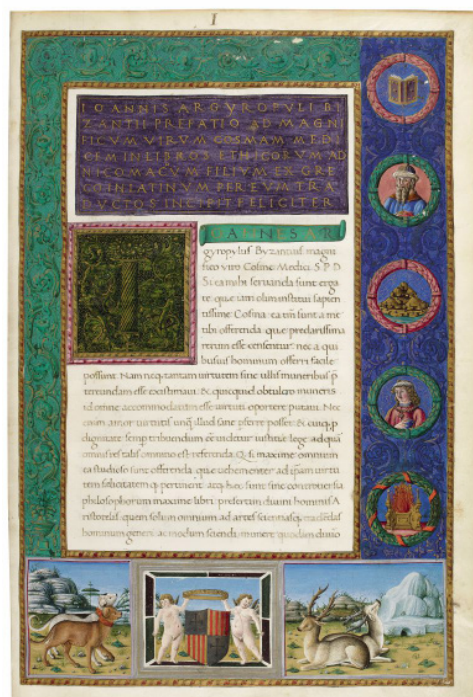 I
IOANNIS ARGYROPULI BI
ZANTII PREFATIO AD MAGNI
FICUM VIRUM COSMAM MEDI
CEM IN LIBROS ETHICORUM AD
NICOMACUM FILIUM EX GRE
CO IN LATINUM PER EUM TRA
DUCTOS INCIPIT FELICITER
IOANNES AR
gyropylus Byzantius magni
fico viro Cosme Medici S P D
Si ea mihi servanda sunt erga
te que iam olim institui sapien
tissime Cosma ea tibi sunt a me
tibi offerenda que preclarissima
rerum esse censentur nec a qui
busvis hominum offerri facile
possunt. Nam neq tantam virtutem sine ullis muneribus
tereundam esse existimavi & quicquid obtulero muneris
id omne accommodatum esse virtuti oportere putavi. Nec
enim amor virtuti unq illud sane preferre posset & cuiq p
dignitate semp tribuendum ee videtur iustitie lege ad quam
omnis res talis omnino est referenda. Q si maxime omnium
ea studioso sunt offerenda que vehementer ad ipsam virtu
tem solicitatem q pertinent atq hec sunt sine controversia
philosophorum maxime libri presertim divini hominis A
ristotelis quem solum omnium ad artes scientiasq
hominum generi ac modum sciendi munere quodam divino